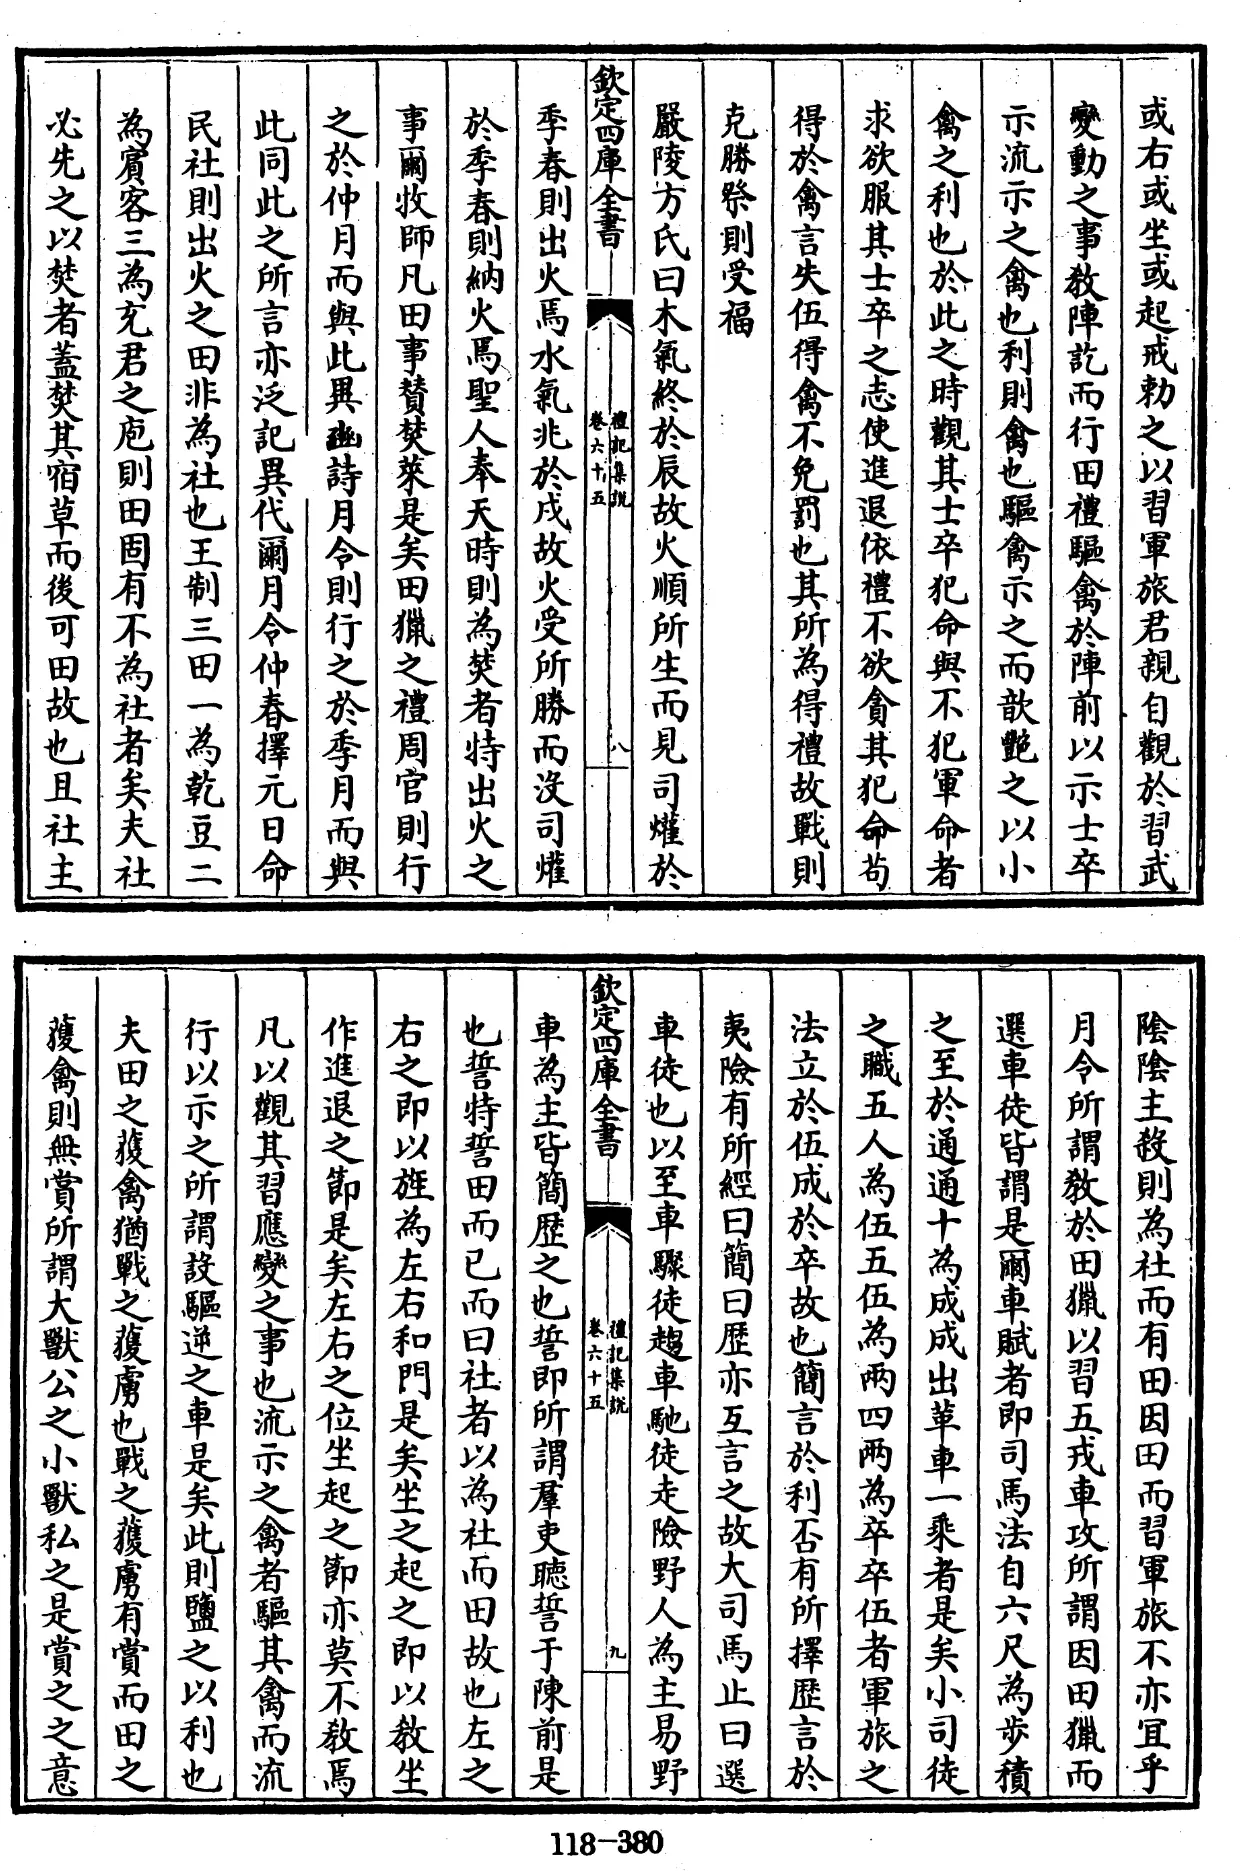 或右或坐或起戒勅之以習軍旅君親自觀於習武
變動之事教陣訖而行田禮驅禽於陣前以示士卒
示流示之禽也利則禽也驅禽示之而歆艶之以小
禽之利也於此之時觀其士卒犯命與不犯軍命者
求欲服其士卒之志使進退依禮不欲貪其犯命茍
得於禽言失伍得禽不免罰也其所為得禮故戰則
克勝祭則受福
嚴陵方氏曰木氣終於辰故火順所生而見司爟於
欽定四庫全書
禮記集説
卷六十五
八
季春則出火焉水氣兆於戌故火受所勝而沒司爟
於季春則納火焉聖人奉天時則為焚者特出火之
事爾牧師凡田事賛焚萊是矣田獵之禮周官則行
之於仲月而與此異豳詩月令則行之於季月而與
此同此之所言亦泛記異代爾月令仲春擇元日命
民社則出火之田非為社也王制三田一為乾豆二
為賓客三為充君之庖則田固有不為社者矣夫社
必先之以焚者蓋焚其宿草而後可田故也且社主
陰陰主殺則為社而有田因田而習軍旅不亦宜乎
月令所謂教於田獵以習五戎車攻所謂因田獵而
選車徒皆謂是爾車賦者即司馬法自六尺為步積
之至於通通十為成成出革車一乘者是矣小司徒
之職五人為伍五伍為兩四兩為卒卒伍者軍旅之
法立於伍成於卒故也簡言於利否有所擇歴言於
夷險有所經曰簡曰歴亦互言之故大司馬止曰選
車徒也以至車驟徒趨車馳徒走險野人為主易野
欽定四庫全書
禮記集説
卷六十五
九
車為主皆簡歴之也誓即所謂羣吏聽誓于陳前是
也誓特誓田而已而曰社者以為社而田故也左之
右之即以旌為左右和門是矣坐之起之即以教坐
作進退之節是矣左右之位坐起之節亦莫不教焉
凡以觀其習應變之事也流示之禽者驅其禽而流
行以示之所謂設驅逆之車是矣此則鹽之以利也
夫田之獲禽猶戰之獲虜也戰之獲虜有賞而田之
獲禽則無賞所謂大獸公之小獸私之是賞之之意
118-380